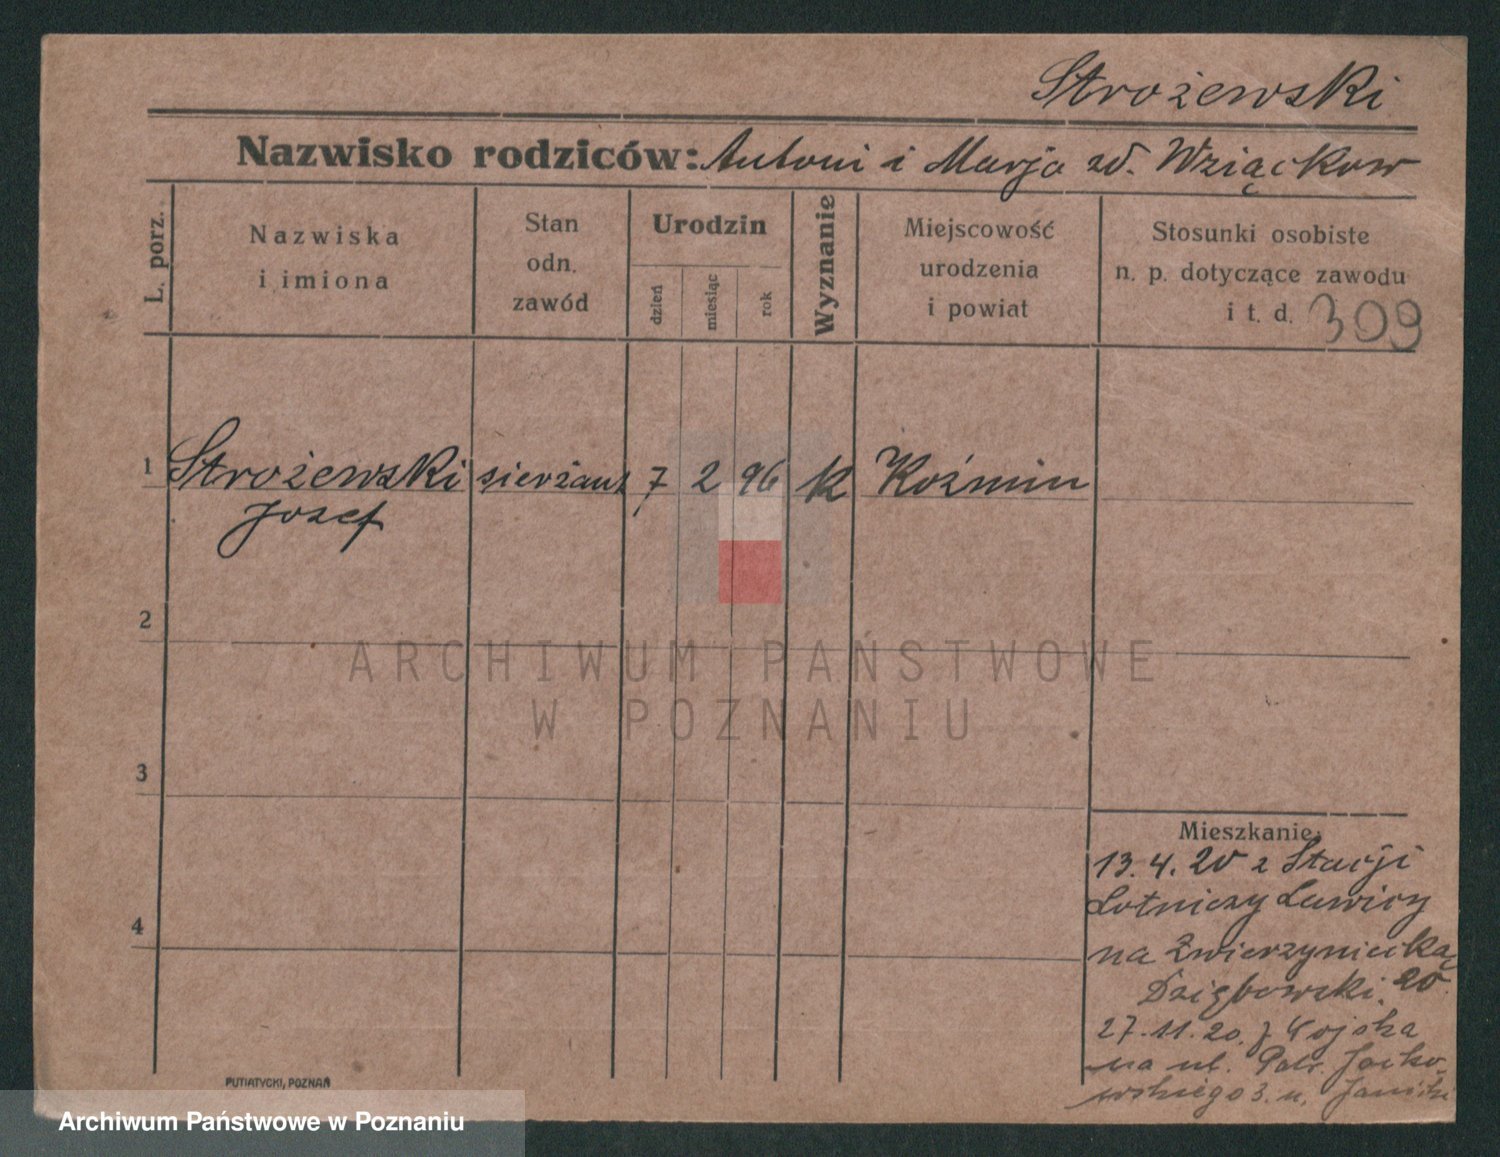 Strożewski
Nazwisko rodziców: Antoni i Marja zd. Wziąckow
L. porz.
Nazwiska
i imiona
Stan
odn.
zawód
Urodzin
dzień
miesiąc
rok
Wyznanie
Miejscowość
urodzenia
i powiat
Stosunki osobiste
n. p. dotyczące zawodu
i t. d. 309
1 Strożewski sierżant 7 2 96 K Koźmin
Jozef
2
ARCHIWUM PAŃSTWOWE
W POZNANIU
3
Mieszkanie
13.4.20 z Stacji
Lotniczy Ławicy
na Zwierzyniecką
Dziębowski. 20
27.11.20. z Wojska
na ul. Patr. Jacko-
wskiego 3. u.
4
PUTIATYCKI, POZNAŃ
Archiwum Państwowe w Poznaniu